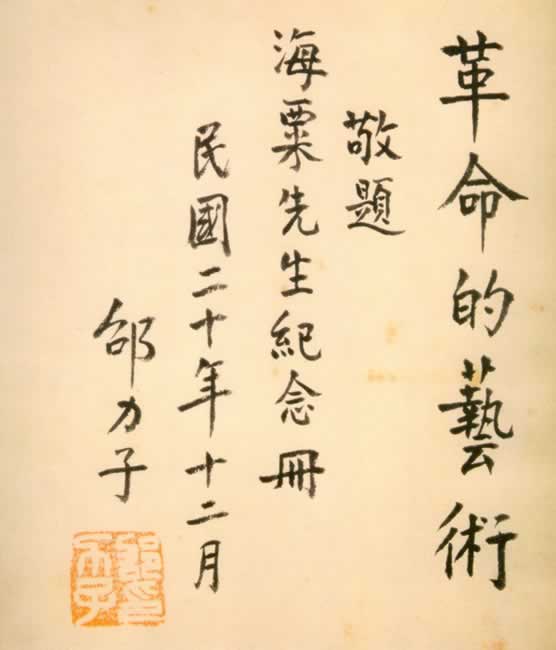 革命的藝術
敬題
海粟先生紀念冊
民國二十年十二月
邵力子